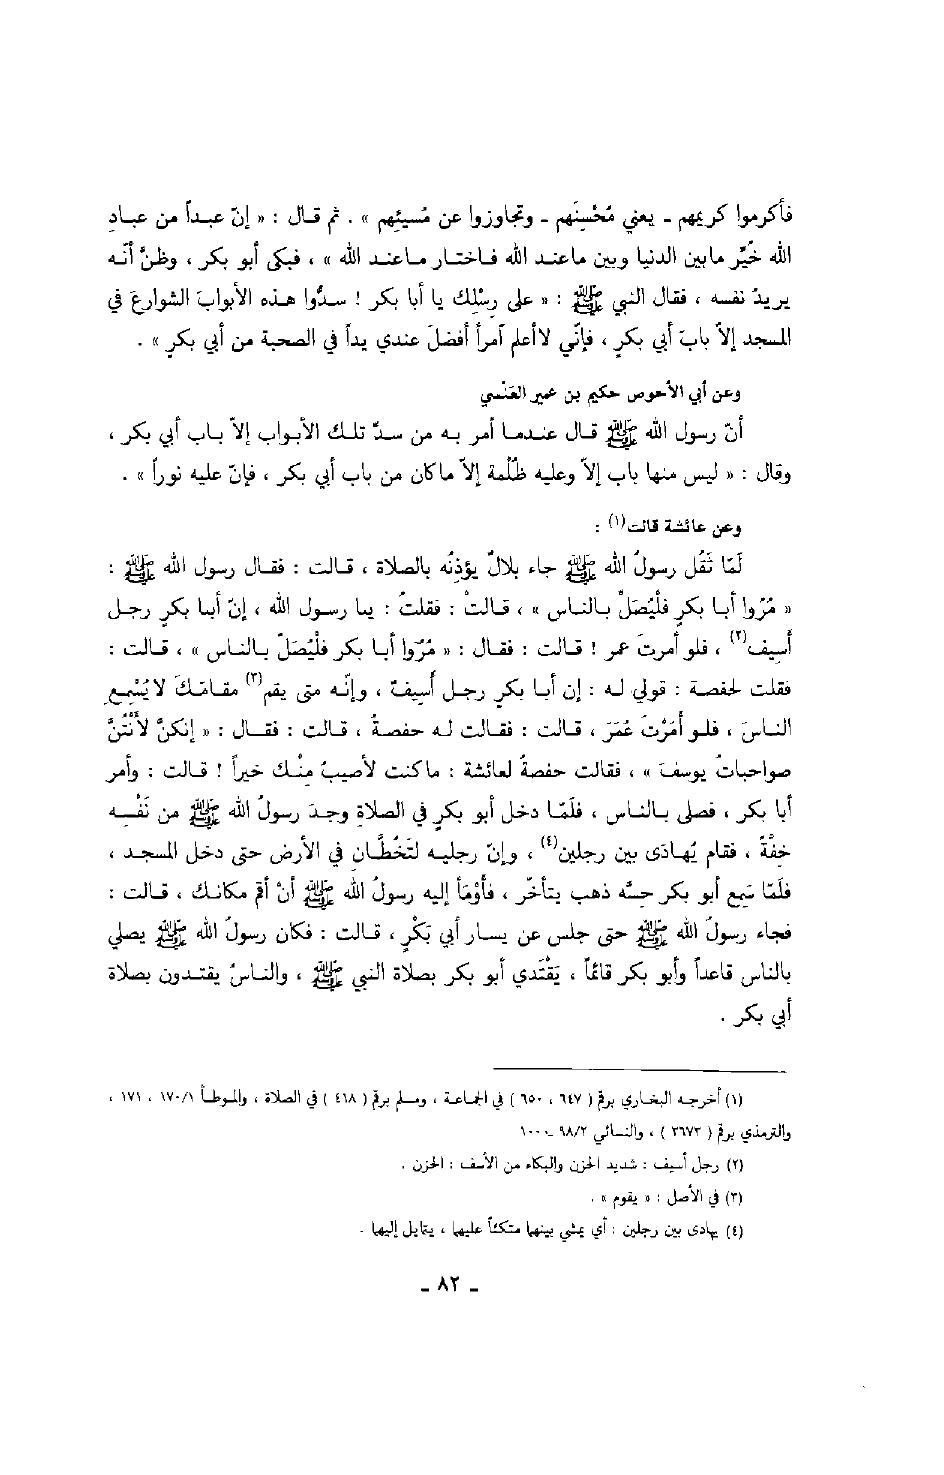 فأكرموا كريمهم ـ يعني مُحْسِنَهم ـ وتجاوزوا عن مُسيئِهم » . ثم قال : « إنّ عبداً من عبادِ
الله خُيِّر مابين الدنيا وبين ماعند الله فاختار ماعند الله » ، فبكى أبو بكر ، وظنَّ أنّه
يريدُ نفسه ، فقال النبي ﷺ : « على رِسْلِك يا أبا بكر ! سدُّوا هذه الأبوابَ الشوارعَ في
المسجد إلاّ بابَ أبي بكرٍ ، فإنّي لاأعلم آمرأ أفضلَ عندي يداً في الصحبة من أبي بكرٍ » .
وعن أبي الأحوص حكيم بن عمير العَنْسي
أنّ رسول الله ﷺ قال عندما أمر به من سدّ تلك الأبواب إلاّ باب أبي بكر ،
وقال : « ليس منها باب إلاّ وعليه ظُلْمة إلاّ ماكان من باب أبي بكر ، فإنّ عليه نوراً » .
وعن عائشة قالت(١) :
لَمّا ثَقُل رسولُ الله ﷺ جاء بلالٌ يؤذِنُه بالصلاة ، قالت : فقال رسول الله ﷺ :
« مُرُوا أبا بكرٍ فلْيُصَلِّ بالناس » ، قالتْ : فقلتُ : يا رسول الله ، إنّ أبا بكرٍ رجل
أسِيف(٢) ، فلو أمرتَ عمر ! قالت : فقال : « مُرُوا أبا بكر فلْيُصَلّ بالناس » ، قالت :
فقلت لحفصة : قولي له : إن أبا بكرٍ رجل أَسِيفٌ ، وإنّه متى يقم(٣) مقامَكَ لا يُسْمِعِ
الناسَ ، فلو أمَرْتَ عُمَرَ ، قالت : فقالت له حفصةُ ، قالت : فقال : « إنكنَّ لأنْتُنَّ
صواحباتُ يوسفَ » ، فقالت حفصةُ لعائشة : ماكنت لأصيبُ مِنْك خيراً ! قالت : وأمر
أبا بكر ، فصلى بالناس ، فلَمّا دخل أبو بكرٍ في الصلاةِ وجدَ رسولُ الله ﷺ من نَفْسِه
خِفَّةً ، فقام يُهادَى بين رجلين(٤) ، وإنّ رجليه لتَخُطَّان في الأرض حتى دخل المسجد ،
فلَمّا سَمِع أبو بكر حِسَّه ذهب يتأخّر ، فأَوْمَأ إليه رسولُ الله ﷺ أنْ أقم مكانك ، قالت :
فجاء رسولُ الله ﷺ حتى جلس عن يسار أبي بَكْرٍ ، قالت : فكان رسولُ الله ﷺ يصلي
بالناس قاعداً وأبو بكر قائماً ، يَقْتَدي أبو بكر بصلاة النبي ﷺ ، والناسُ يقتدون بصلاة
أبي بكر .
(١) أخرجه البخاري برقم ( ٦٤٧ ، ٦٥٠ ) في الجماعة ، ومسلم برقم ( ٤١٨ ) في الصلاة ، والموطأ ١٧٠/١ ، ١٧١ ،
والترمذي برقم ( ٣٦٧٣ ) ، والنسائي ٩٨/٢ ـ ١٠٠
(٢) رجل أسيف : شديد الحزن والبكاء من الأسف : الحزن .
(٣) في الأصل : « يقوم » .
(٤) يهادى بين رجلين : أي يمشي بينهما متكئاً عليهما ، يتمايل إليهما .
ـ ٨٢ ـ